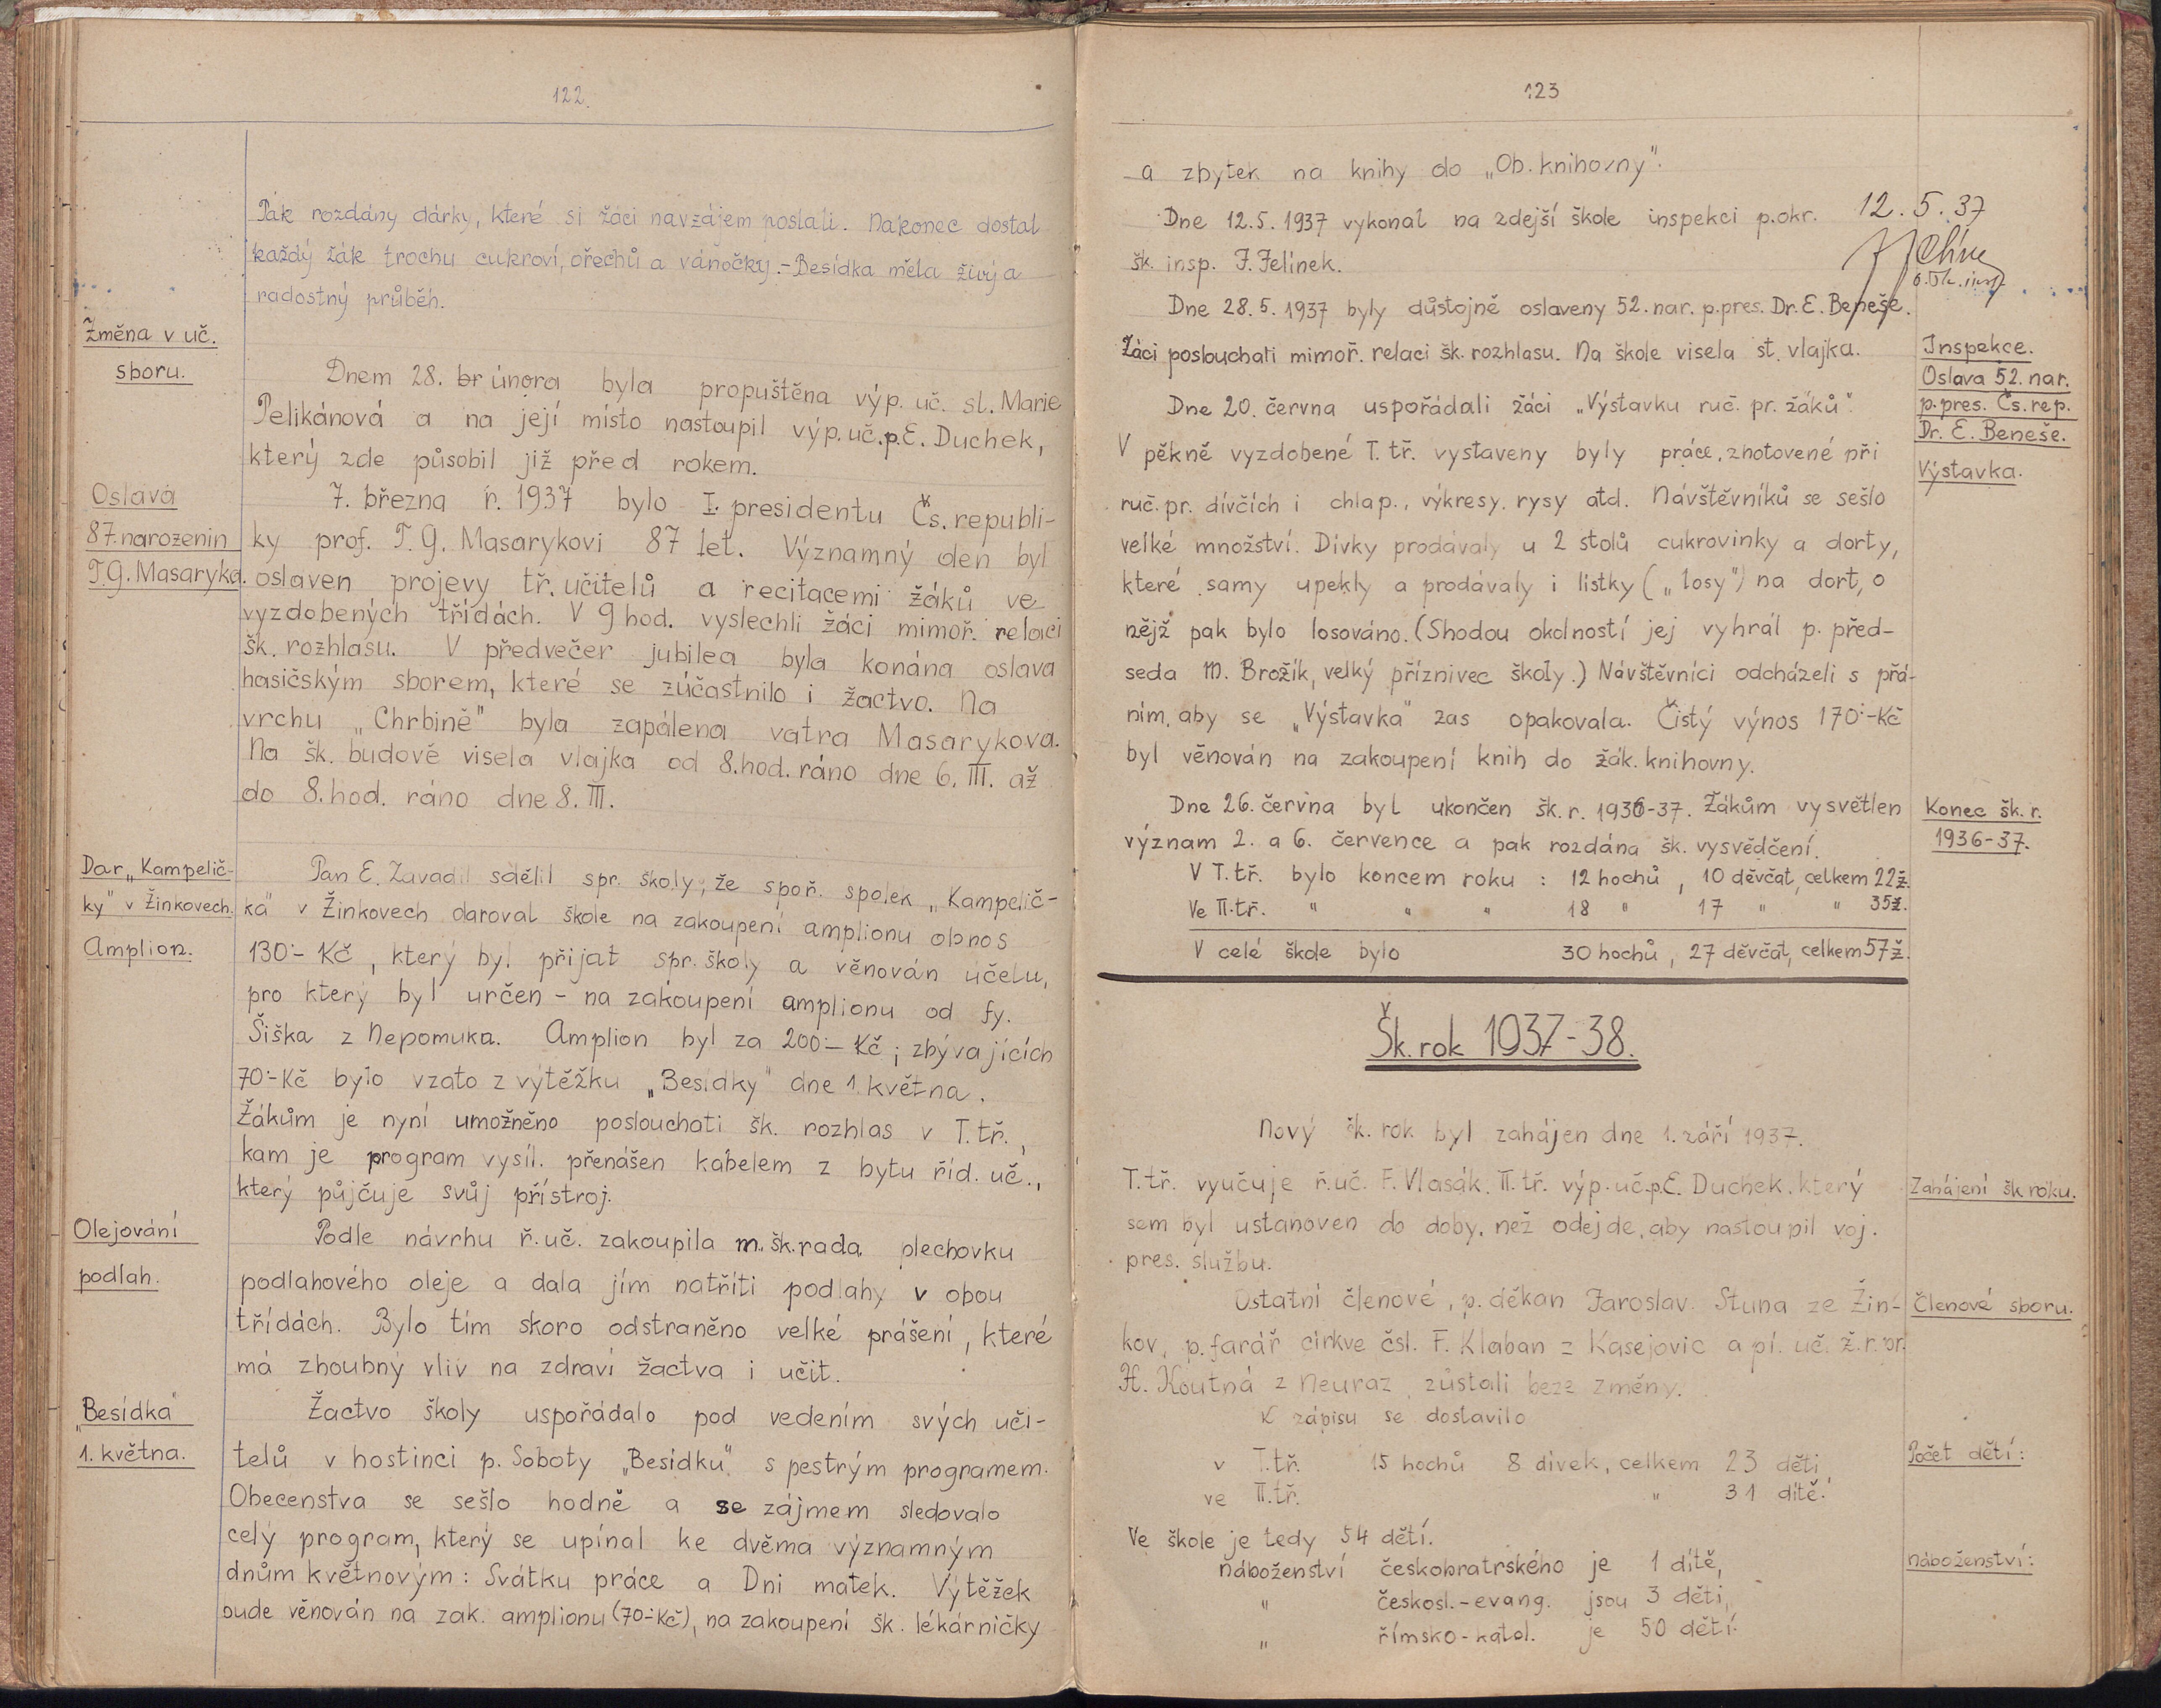 122.
Pak rozdány dárky, které si žáci navzájem poslali. Nakonec dostal
každý žák trochu cukroví, ořechů a vánočky.-Besídka měla živý a
radostný průběh.
Změna v uč.
sboru.
Dnem 28. br února byla propuštěna výp. uč. sl. Marie
Pelikánová a na její místo nastoupil výp.uč.p.E. Duchek,
který zde působil již před rokem.
Oslava
87.narozenin
T.G. Masaryka.
7. března r. 1937 bylo I. presidentu Čs. republi-
ky prof. T. G. Masarykovi 87 let. Významný den byl
oslaven projevy tř. učitelů a recitacemi žáků ve
vyzdobených třídách. V 9 hod. vyslechli žáci mimoř. relaci
šk. rozhlasu. V předvečer jubilea byla konána oslava
hasičským sborem, které se zúčastnilo i žactvo. Na
vrchu „Chrbině" byla zapálena vatra Masarykova.
Na šk. budově visela vlajka od 8.hod. ráno dne 6. III. až
do 8. hod. ráno dne 8. III.
Dar „Kampelič-
ky" v Žinkovech.
Amplion.
Pan E. Zavadil sdělil spr. školy, že spoř. spolek „Kampelič-
ka" v Žinkovech daroval škole na zakoupení amplionu obnos
130·- Kč, který byl přijat spr. školy a věnován účelu,
pro který byl určen - na zakoupení amplionu od fy.
Šiška z Nepomuka. Amplion byl za 200·- Kč; zbývajících
70·-Kč bylo vzato z výtěžku „Besídky" dne 1. května.
Žákům je nyní umožněno poslouchati šk. rozhlas v I. tř.,
kam je program vysíl. přenášen kabelem z bytu říd. uč.,
který půjčuje svůj přístroj.
Olejování
podlah.
Podle návrhu ř. uč. zakoupila m. šk. rada plechovku
podlahového oleje a dala jím natříti podlahy v obou
třídách. Bylo tím skoro odstraněno velké prášení, které
má zhoubný vliv na zdraví žactva i učit.
„Besídka"
1. května.
Žactvo školy uspořádalo pod vedením svých uči-
telů v hostinci p. Soboty „Besídku" s pestrým programem.
Obecenstva se sešlo hodně a se zájmem sledovalo
celý program, který se upínal ke dvěma významným
dnům květnovým: Svátku práce a Dni matek. Výtěžek
bude věnován na zak. amplionu (70·-Kč), na zakoupení šk. lékárničky
123
a zbytek na knihy do „Ob. knihovny".
Dne 12.5.1937 vykonal na zdejší škole inspekci p.okr.
šk. insp. J. Jelínek.
12. 5. 37
Dne 28. 5. 1937 byly důstojně oslaveny 52. nar. p.pres. Dr. E. Beneše.
Žáci poslouchali mimoř. relaci šk. rozhlasu. Na škole visela st. vlajka.
Inspekce.
Oslava 52. nar.
p.pres. Čs. rep.
Dr. E. Beneše.
Výstavka.
Dne 20. června uspořádali žáci „Výstavku ruč. pr. žáků".
V pěkně vyzdobené I. tř. vystaveny byly práce, zhotovené při
ruč. pr. dívčích i chlap., výkresy. rysy atd. Návštěvníků se sešlo
velké množství. Dívky prodávaly u 2 stolů cukrovinky a dorty,
které samy upekly a prodávaly i lístky („losy") na dort, o
nějž pak bylo losováno. (Shodou okolností jej vyhrál p. před-
seda M. Brožík, velký příznivec školy.) Návštěvníci odcházeli s přá-
ním, aby se „Výstavka" zas opakovala. Čistý výnos 170·-Kč
byl věnován na zakoupení knih do žák. knihovny.
Konec šk. r.
1936-37.
Dne 26. června byl ukončen šk. r. 1936-37. Žákům vysvětlen
význam 2. a 6. července a pak rozdána šk. vysvědčení.
V I. tř. bylo koncem roku : 12 hochů, 10 děvčat, celkem 22 ž.
Ve II. tř. " " " 18 " 17 " " 35 ž.
V celé škole bylo 30 hochů, 27 děvčat, celkem 57 ž.
Šk. rok 1937-38.
Nový šk. rok byl zahájen dne 1. září 1937.
Zahájení šk. roku.
I. tř. vyučuje ř.uč. F. Vlasák. II. tř. výp. uč.p.E. Duchek. který
sem byl ustanoven do doby, než odejde, aby nastoupil voj.
pres. službu.
Členové sboru.
Ostatní členové, p. děkan Jaroslav Stuna ze Žin-
kov, p. farář církve čsl. F. Klaban z Kasejovic a pí. uč. ž. r. pr.
H. Koutná z Neuraz, zůstali beze změny.
K zápisu se dostavilo
Počet dětí:
v I. tř. 15 hochů 8 dívek, celkem 23 dětí,
ve II. tř. " 31 dítě.
Ve škole je tedy 54 dětí.
Náboženství:
Náboženství českobratrského je 1 dítě,
" českosl.-evang. jsou 3 děti,
" římsko-katol. je 50 dětí.